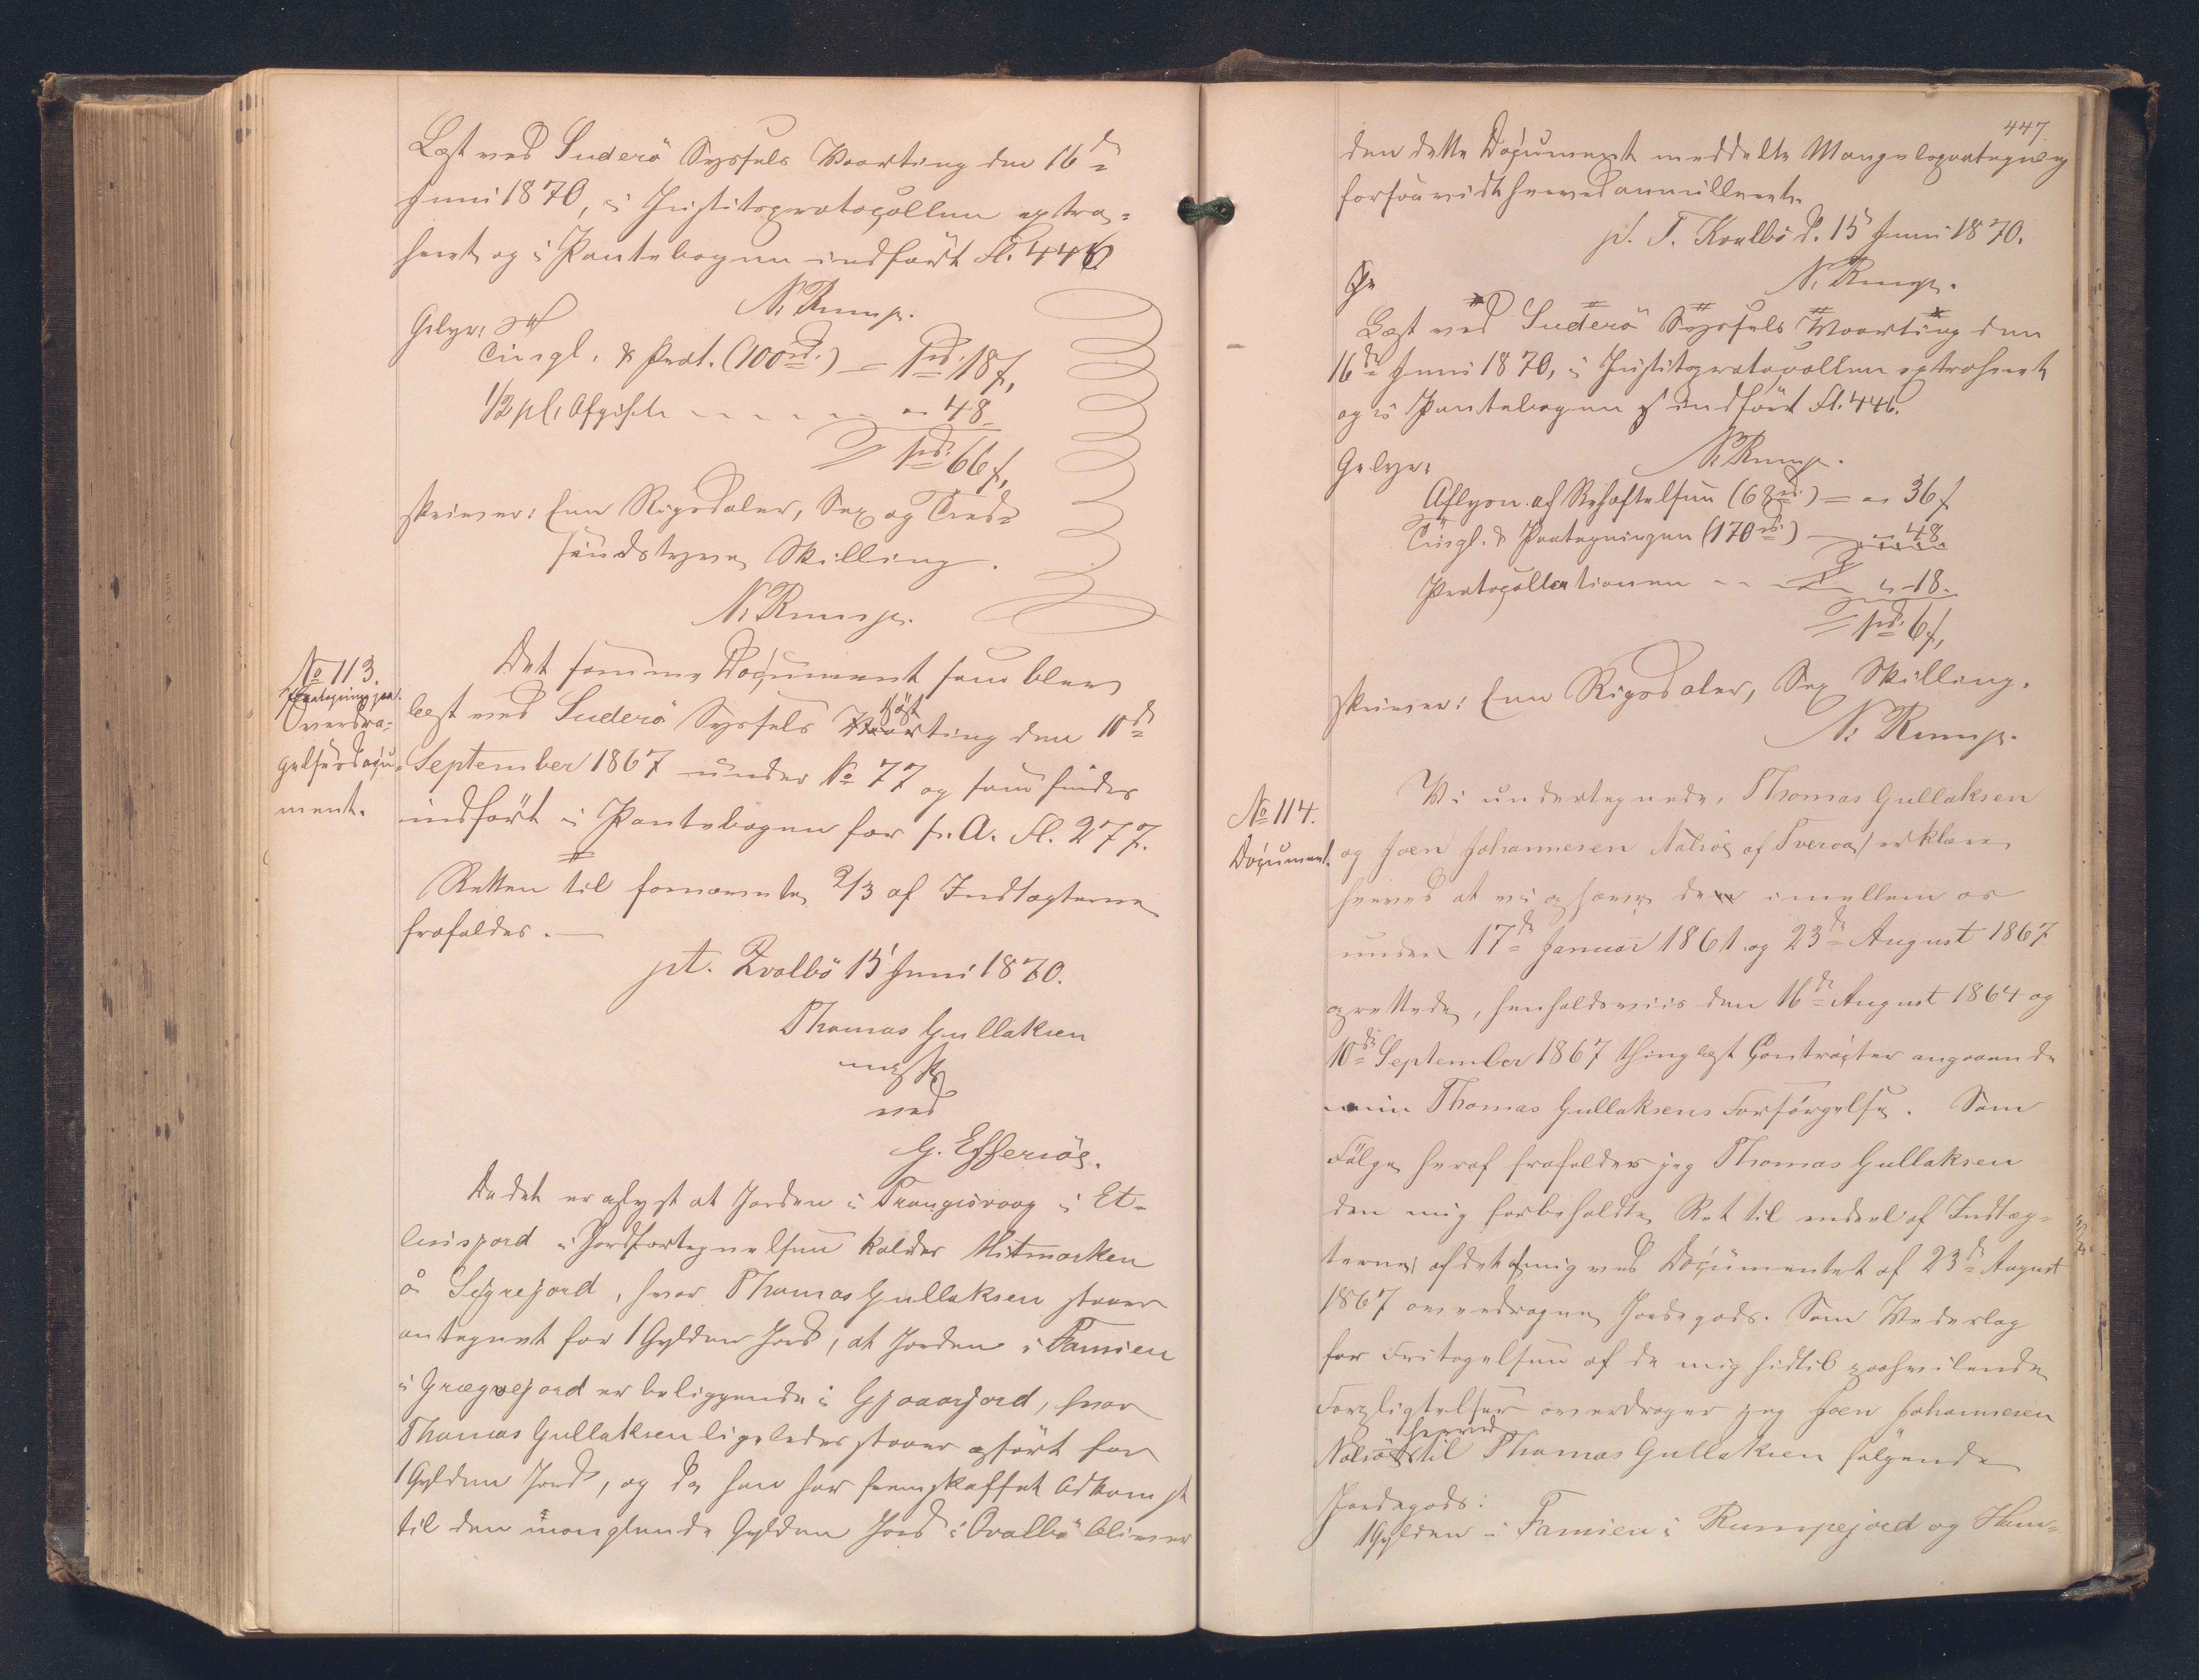 Læst ved Suderö Syssels Vaarting den 16de
Juni 1870, i Justitsprotocollen extra-
heret og i Pantebogen indført Fl. 446
N. Rump.
Gebyr:
Tingl. & Prot. (100 rd.) = 1 rd. 18 s,
1/2 pCt. Afgift - - - - - - „ 48
= 1 rd. 66 s,
skriver: Een Rigsdaler, Sex og Tred-
sindstyve Skilling.
N. Rump.
No 113.
Paategning paa
Overdra-
gelsesdocu-
ment.
Det samme Document som blev
læst ved Suderö Syssels Höstting den 10de
September 1867 under No 77 og som findes
indført i Pantebogen for s. A. Fl. 277.
Retten til fornævnte 2/3 af Indtægterne
frafaldes. —
pt. Qvalbö 15 Juni 1870.
Thomas Gullaksen
m. f. P.
ved
G. Effersöe.
Da det er oplyst at Jorden i Trangisvaag i Et-
lerisjord i Jordfortegnelsen kaldes Hitmarken
å Segrejord, hvor Thomas Gullaksen staaer
antegnet for 1 Gylden Jord, at Jorden i Famien
i Grægvejord er beliggende i Gjaaarjord, hvor
Thomas Gullaksen ligeledes staaer opført for
1 Gylden Jord, og da han har fremskaffet Adkomst
til den manglende Gylden Jord i Qvalbö bliver
447.
den dette Document meddelte Mangelspaategning
forsaavidt herved annulleret.
pt. T. Kvalbö d. 15 Juni 1870.
N. Rump.
Læst ved Suderö Syssels Vaarting den
16de Juni 1870, i Justitsprotocollen extraheret
og i Pantebogen indført Fl. 446.
N. Rump.
Gebyr:
Aflysn. af Behæftelsen (68 rd.) = „ 36 s
Tingl. & Paategningen (170 rd.) — „ 48
Protocollationen - - - „ 18.
= 1 rd. 6 s,
skriver: Een Rigsdaler, Sex Skilling.
N. Rump.
No 114.
Document.
Vi undertegnede, Thomas Gullaksen
og Joen Johannesen Nolsöe af Tveraa, erklære
herved at vi ophæve de imellem os
under 17de Januar 1861 og 23de August 1867
oprettede, henholdsviis den 16de August 1864 og
10de September 1867 thinglæst Contracter angaaende
min Thomas Gullaksens Forsörgelse. Som
Fölge heraf frafalder jeg Thomas Gullaksen
den mig forbeholdte Ret til endeel af Indtæg-
terne af det af mig ved Documentet af 23de August
1867 overdragne Jordegods. Som Vederlag
for Fritagelsen af de mig hidtil paahvilende
Forpligtelser overdrager jeg Joen Johannesen
Nolsöe herved til Thomas Gullaksen fölgende
Jordegods:
1 Gylden i Famien i Rumpejord og Ham-